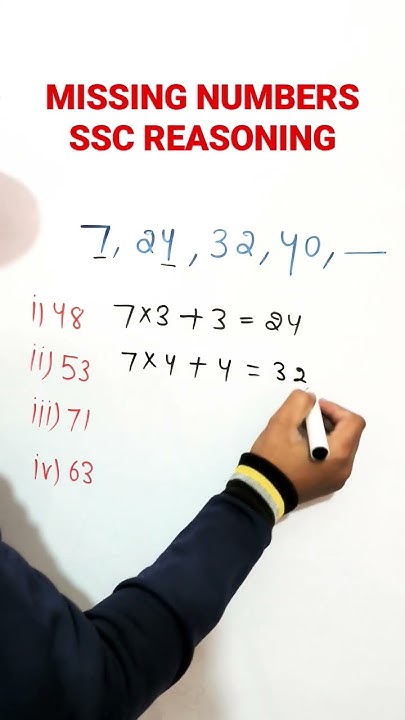 MISSING NUMBERS
SSC REASONING
7, 24, 32, 40, —
i) 48 7×3+3=24
ii) 53 7×4+4=32
iii) 71
iv) 63